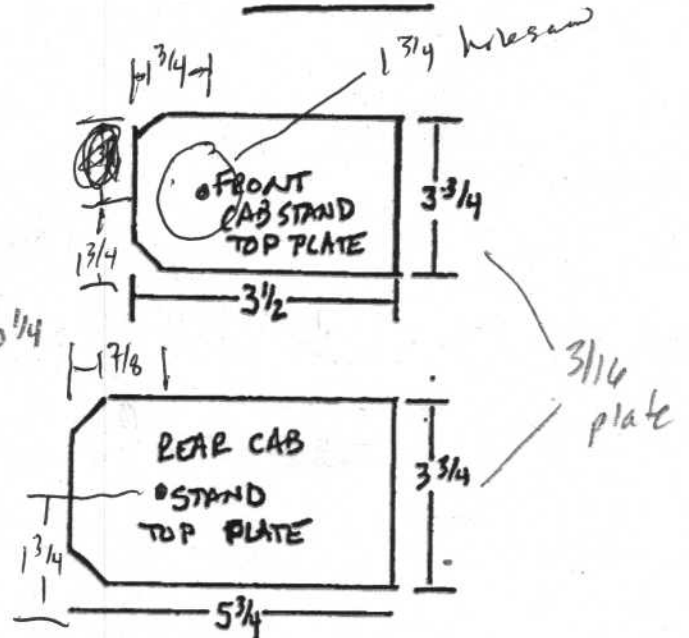 1 3/4 holesaw
1 3/4
FRONT
CAB STAND
TOP PLATE
3 3/4
1 3/4
3 1/2
1/4
7/8
3/16
plate
REAR CAB
STAND
TOP PLATE
3 3/4
1 3/4
5 3/4